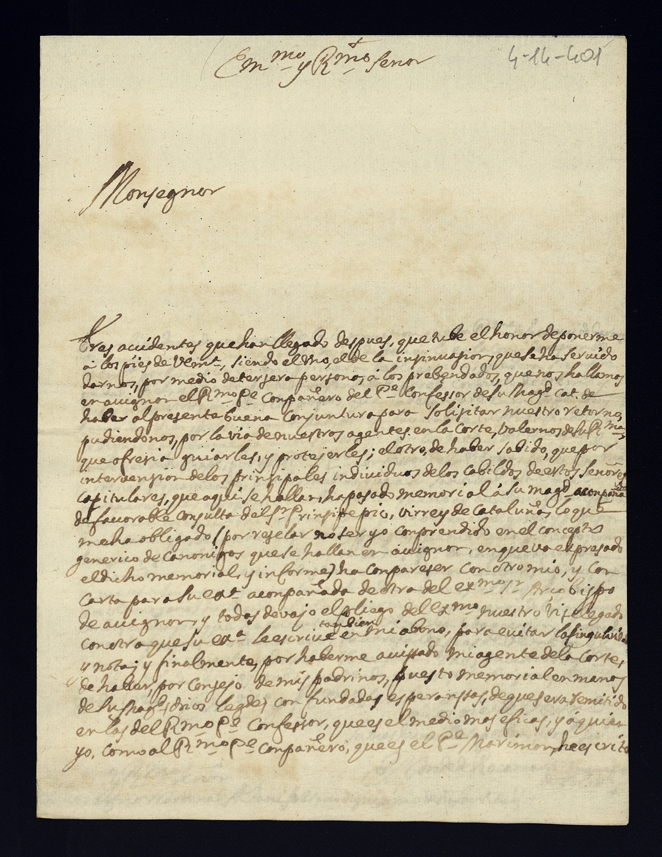 Em.mo y R.mo Senor
4-14-401
Monsegnor
Tres accidentes que han llegado despues, que tube el honor de ponerme
à los pies de Vem.ª, siendo el uno, el de la insinuasion, que se ha servido
darnos, por medio de tersera persona, à los prebendados, que nos hallamos
en avignon el R.mo P.e Compañero del P.e Confessor de su Mag.d Cat. de
haber al presente buena Conjuntura para Solisitar nuestro retorno,
pudiendonos, por la via de nuestros agentes en la Corte, valernos de su R.ma
que ofresia guiarles, y protejerles; el otro, de haber sabido, que por
intervension de los prinsipales individuos de los cabildos de estos Señores
capitulares, que aqui se hallan, ha pasado memorial à su mag.d acompaña
de favorable Consulta del S.r Prinsipe pio, virrey de Cataluña; lo que
me ha obligado (por reselar no ser yo Conprendido en el concepto
generico de Canonigos que se hallan en avignon, en que va expresado
el dicho memorial, y informe) ha conpareser con otro mio, y con
Carta para su ex.ª acompañada de otra del ex.mo S.r Arcobispo
de avignon, y todas devajo el pliego del Ex.mo nuestro Vicelegado
con otra que su ex.ª le escrive tambien en mi abono, para evitar la singularidad
y nota; y finalmente, por haberme avissado mi agente de la Cortes
de haber, por Consejo de mis padrinos, puesto memorial en manos
de su Mag.d (dios le gde) con fundadas esperansas, de que sera remitido
en las del R.mo P.e Confessor, que es el medio mas eficas, y à quien
yo, como al R.mo P.e Conpañero, que es el P.e Marimon, he escrito